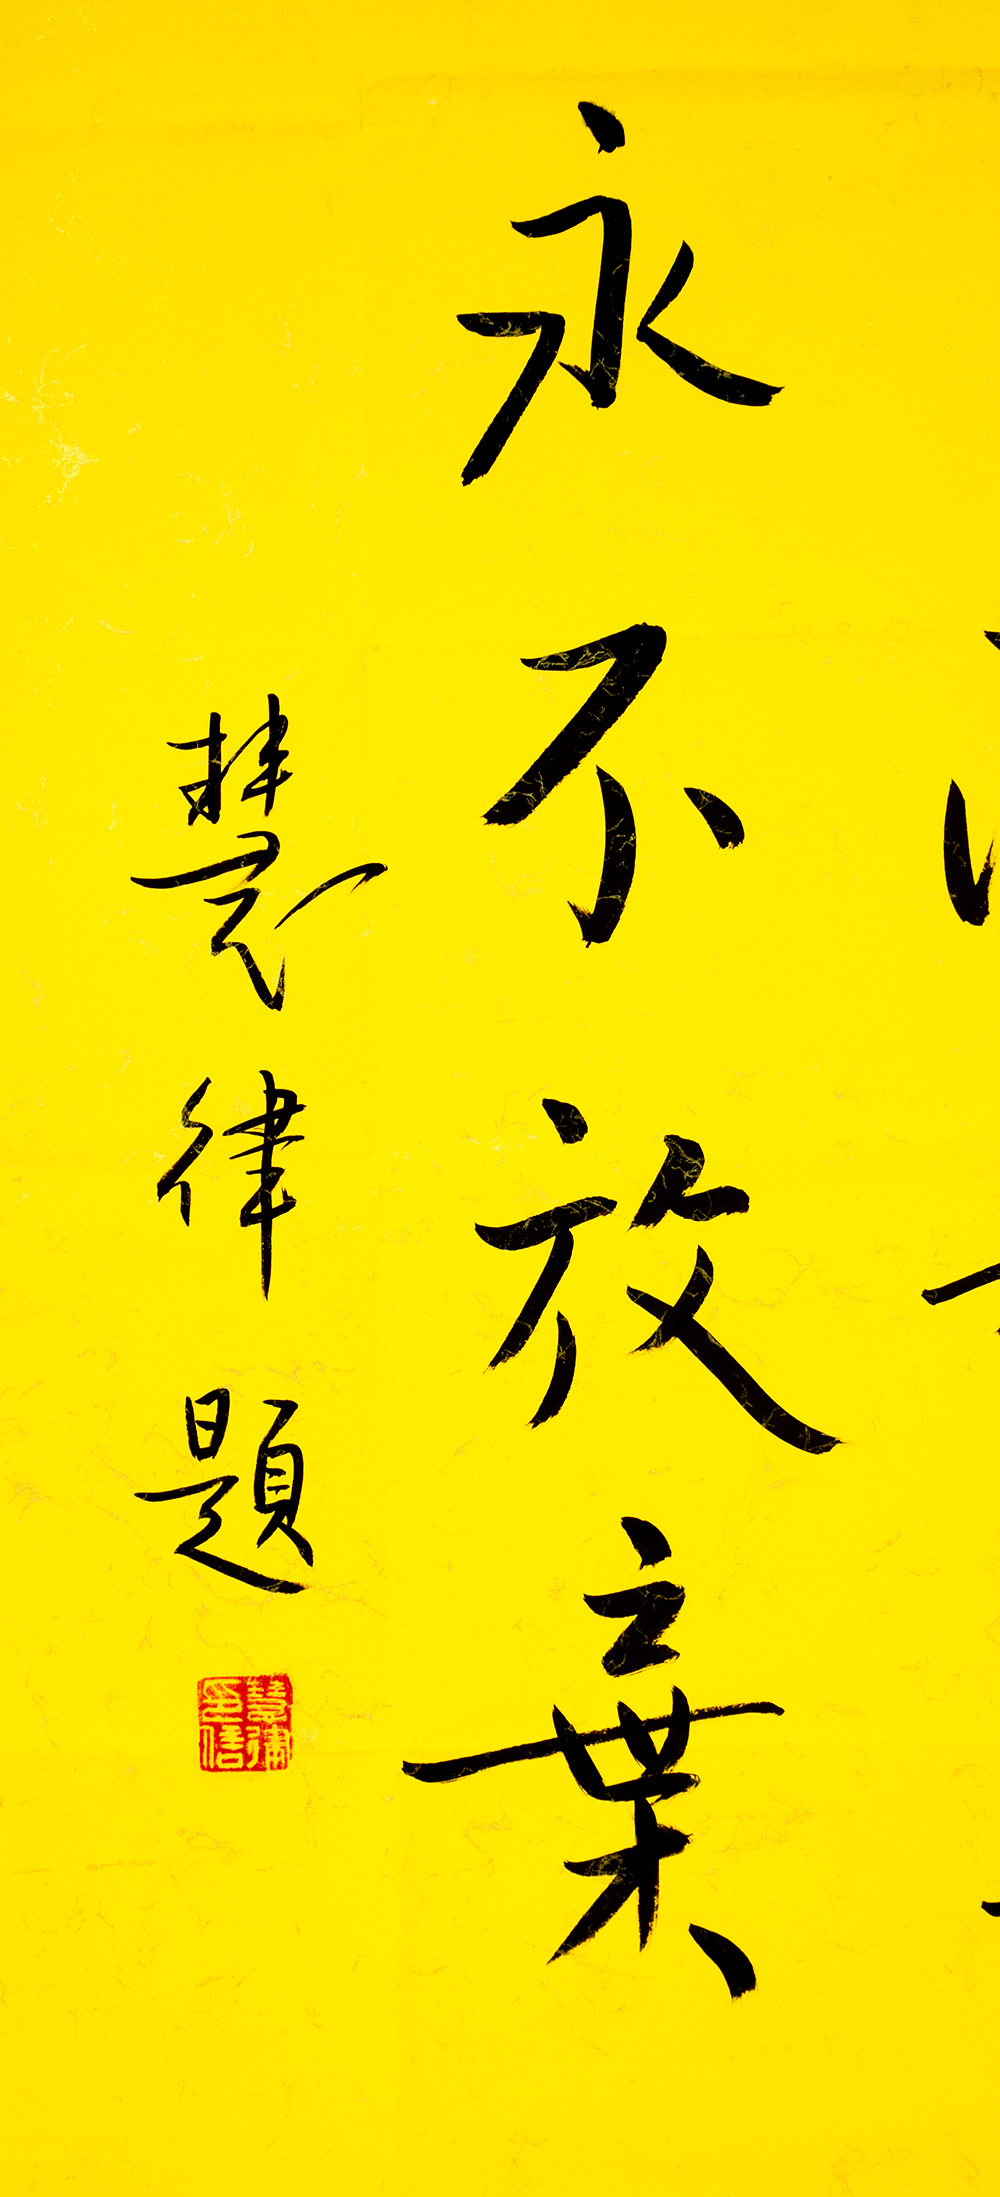 永不放棄
慧律題
慧律印信